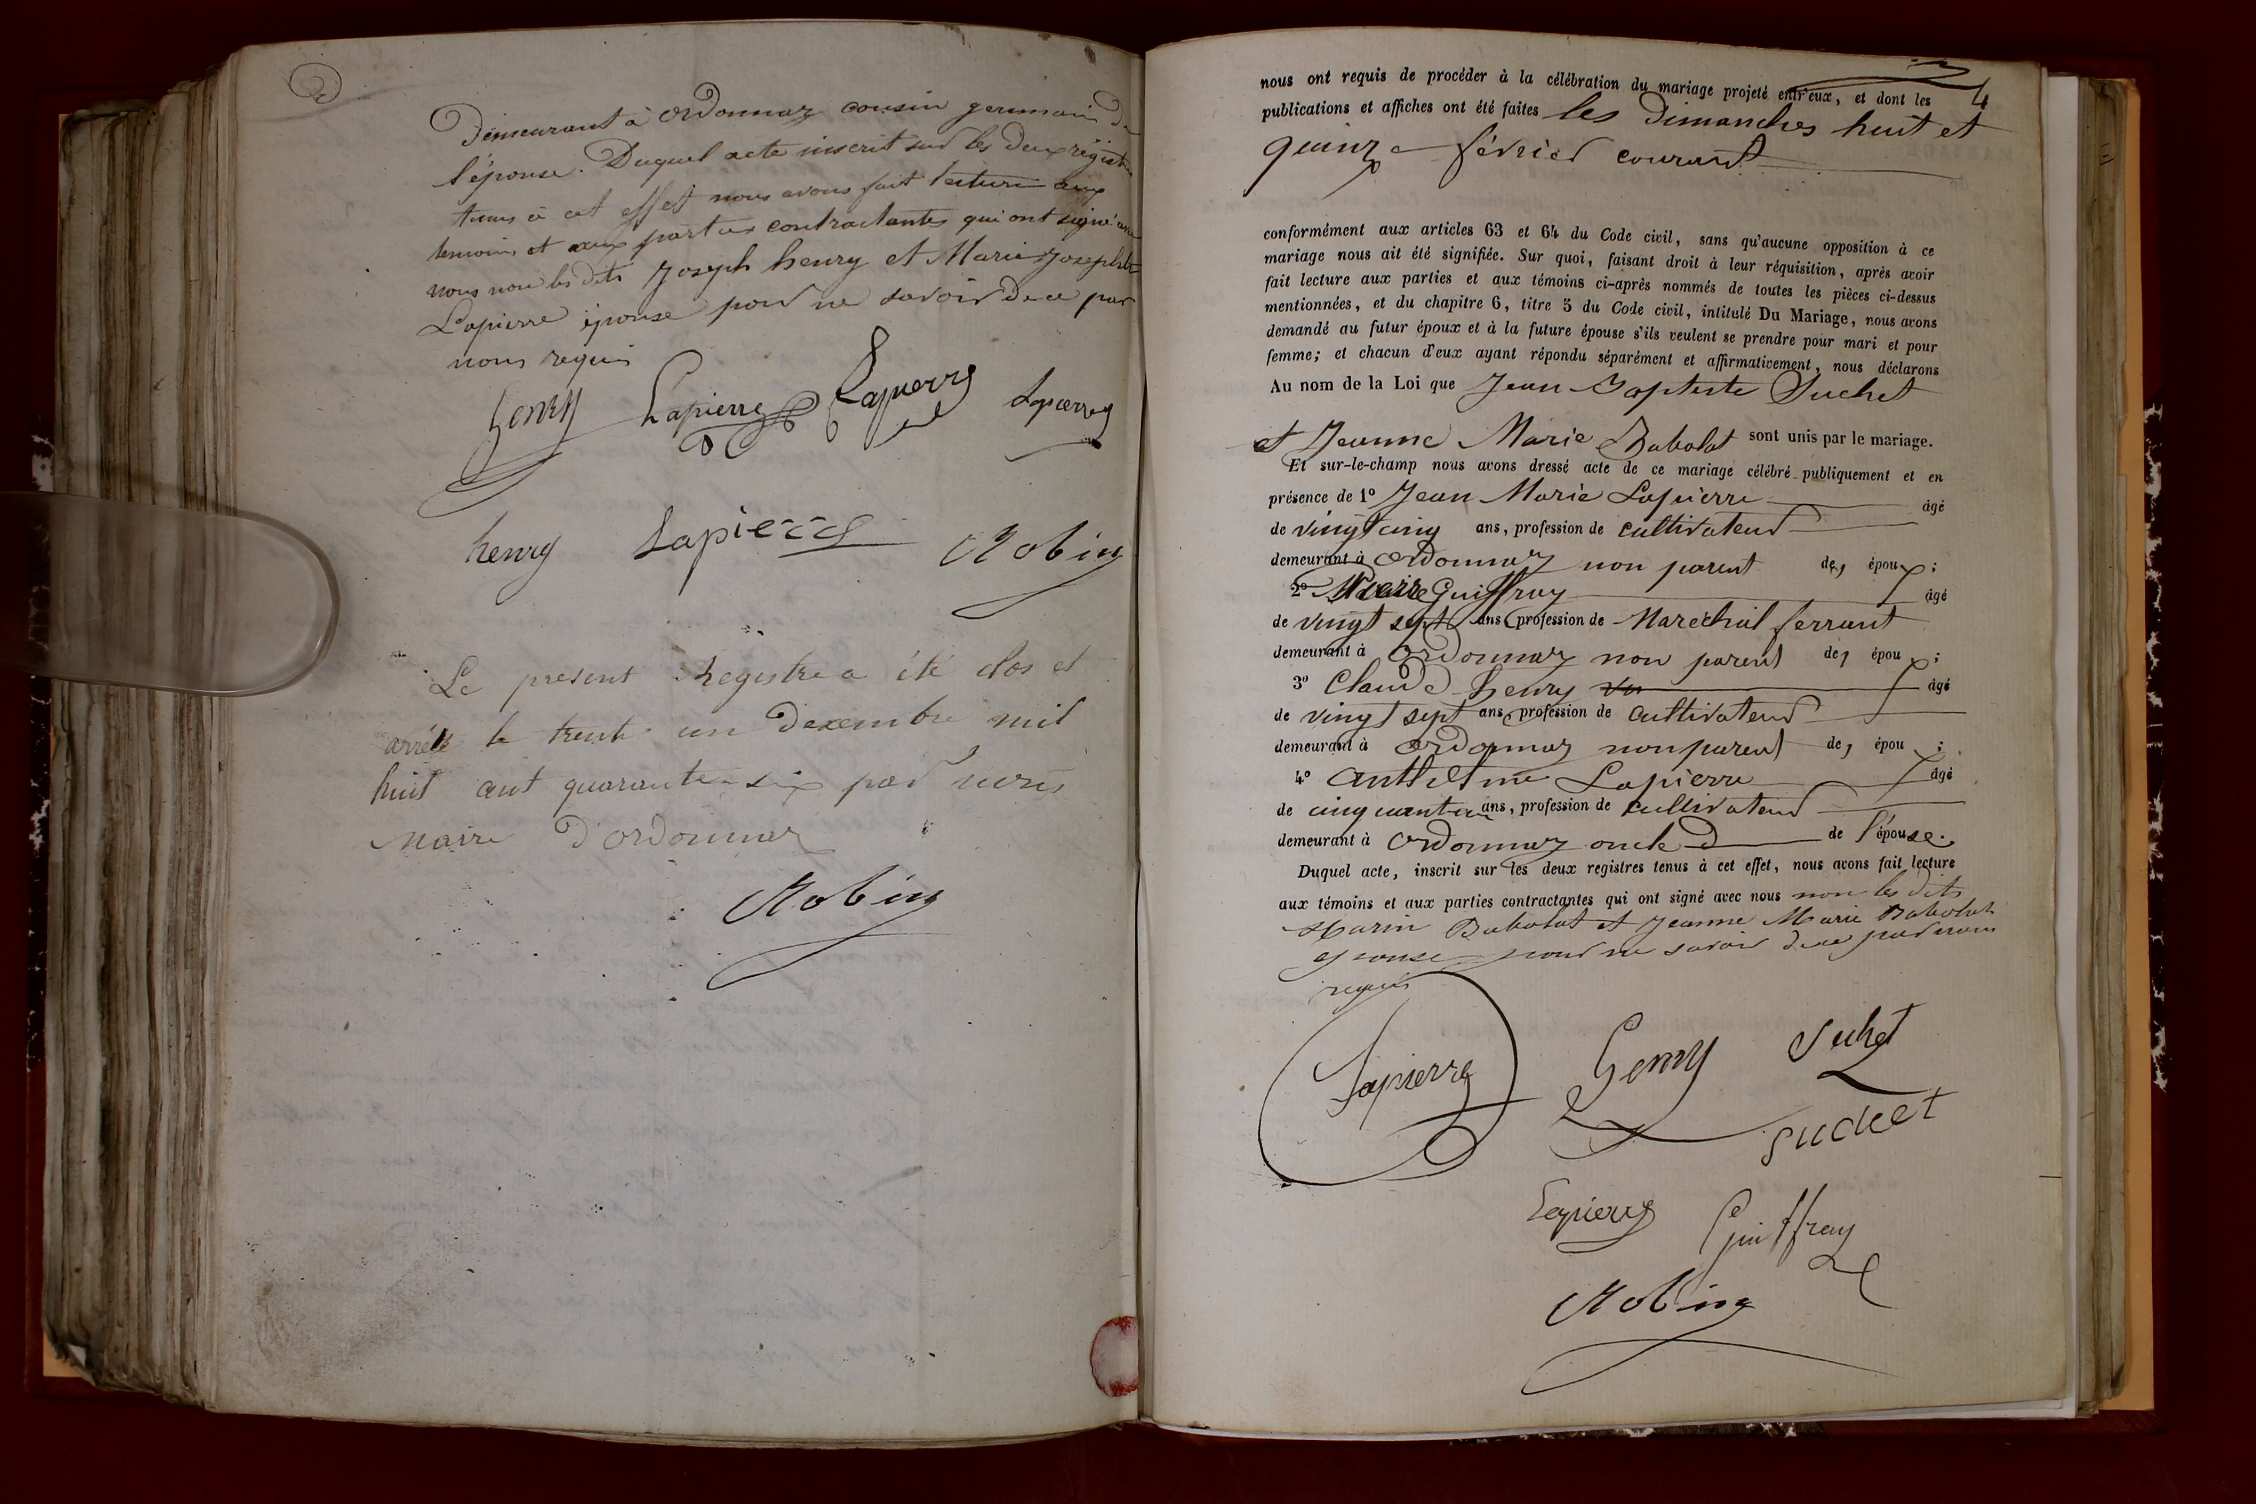 Demeurant à ordonnaz cousin germain de
l'épouse. Duquel acte inscrit sur les deux régistres
tenus à cet effet nous avons fait lecture aux
temoins et aux parties contractantes qui ont signé avec
nous non les dits Joseph henry et Marie Josephte
Lapierre épouse pour ne savoir de ce par
nous requis
henry Lapierre Lapierre Lapierre
henry Lapierre Robin
Le présent Registre a été clos et
arrété le trente un Dexembre mil
huit cent quarante six par nous
Maire D'ordonnaz
Robin
4
nous ont requis de procéder à la célébration du mariage projeté entr'eux, et dont les
publications et affiches ont été faites les Dimanches huit et
quinze février courant
conformément aux articles 63 et 64 du Code civil, sans qu'aucune opposition à ce
mariage nous ait été signifiée. Sur quoi, faisant droit à leur réquisition, après avoir
fait lecture aux parties et aux témoins ci-après nommés de toutes les pièces ci-dessus
mentionnées, et du chapitre 6, titre 5 du Code civil, intitulé Du Mariage, nous avons
demandé au futur époux et à la future épouse s'ils veulent se prendre pour mari et pour
femme; et chacun d'eux ayant répondu séparément et affirmativement, nous déclarons
Au nom de la Loi que Jean Baptiste Suchet
et Jeanne Marie Babolat sont unis par le mariage.
Et sur-le-champ nous avons dressé acte de ce mariage célébré publiquement et en
présence de 1º Jean Marie Lapierre âgé
de vingt cinq ans, profession de cultivateur
demeurant à ordonnaz non parent des époux;
2º Guiffray âgé
de vingt sept ans, profession de Maréchal ferrant
demeurant à ordonnaz non parent des époux;
3º Claude henry âgé
de vingt sept ans, profession de cultivateur
demeurant à ordonnaz non parent des époux;
4º Anthelme Lapierre âgé
de ans, profession de cultivateur
demeurant à ordonnaz oncle de l'épouse.
Duquel acte, inscrit sur les deux registres tenus à cet effet, nous avons fait lecture
aux témoins et aux parties contractantes qui ont signé avec nous non les dits
Marin Babolat et Jeanne Marie Babolat
epouse pour ne savoir de ce par nous
requis
Lapierre henry Suchet
Suchet
Lapierre Guiffray
Robin